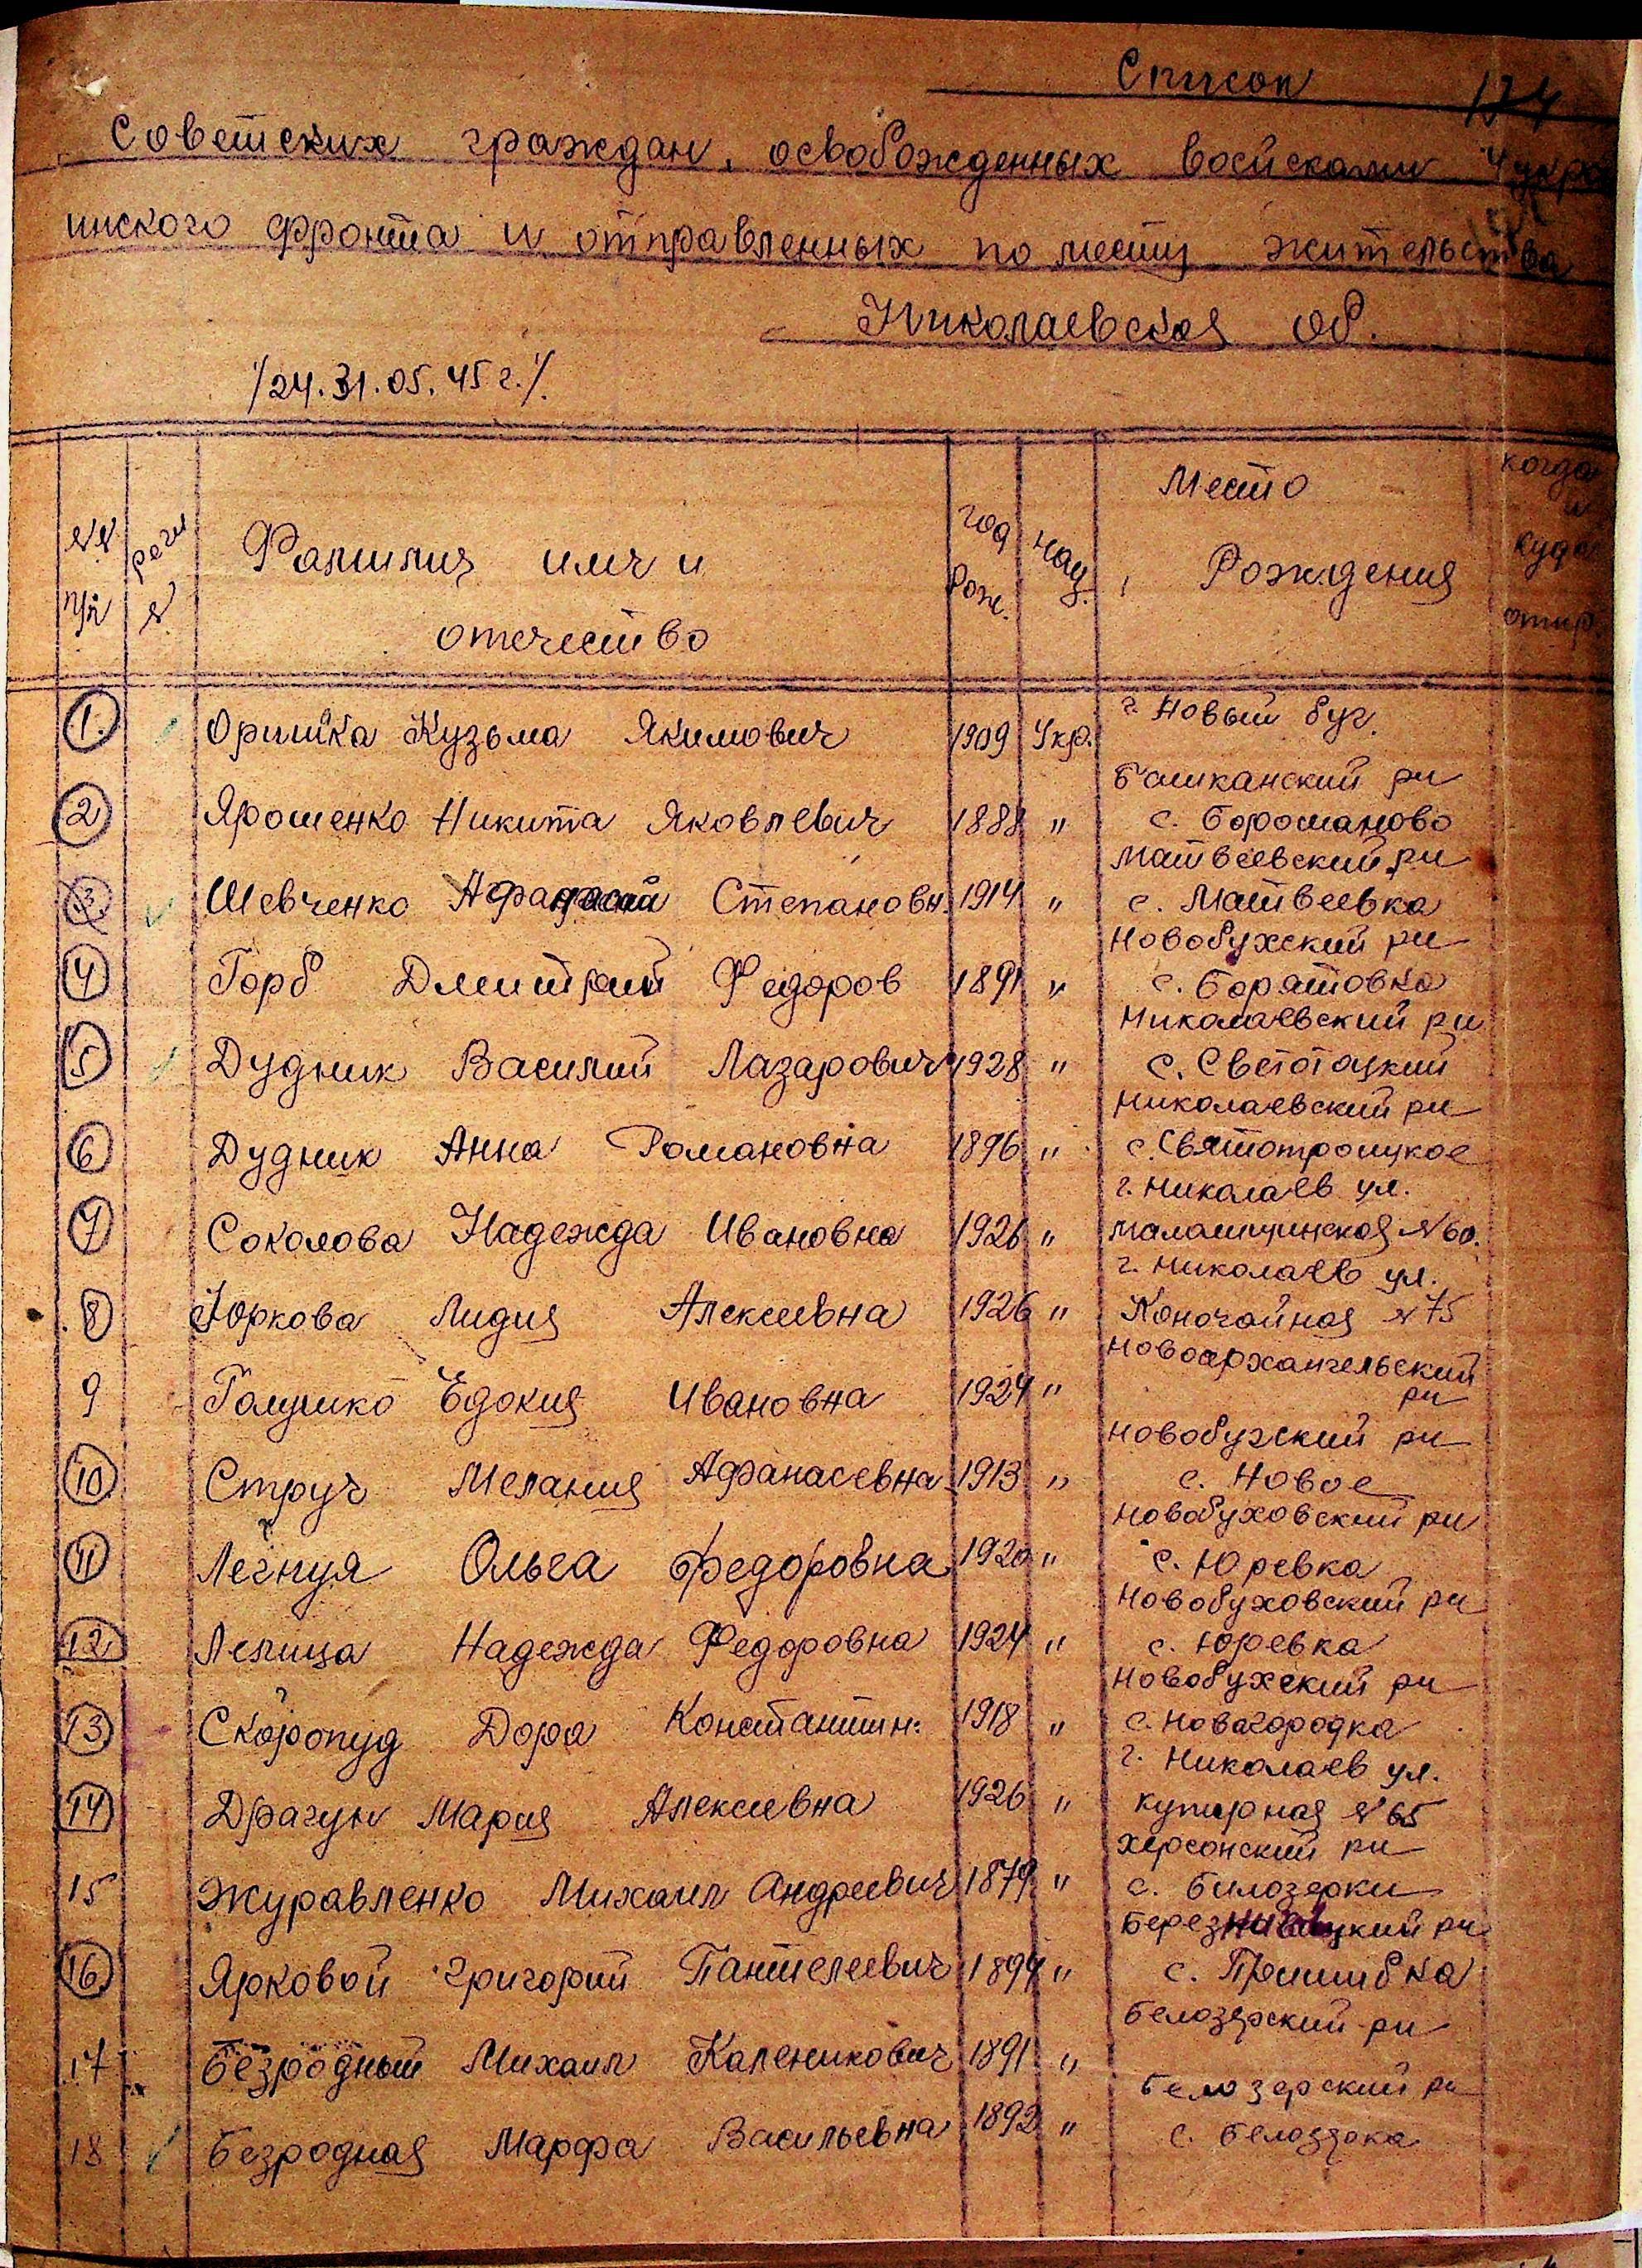 Список
124
Советских граждан, освобожденных войсками 4 укра
инского фронта и отправленных по месту жительства
Николаевская об.
/24.31.05.45 г./.
№№ п/п
реги №
Фамилия имя и отечество
год рож.
нац.
Место Рождения
когда и куда отпр.
1. Оришка Кузьма Якимович 1909 Укр. г. Новый буг.
Башканский рн
2 Ярошенко Никита Яковлевич 1888 " с. Боросманово
Матвеевский рн
3 Шевченко Афанасий Степановн. 1914 " с. Матвеевка
Новобухский рн
4 Горб Дмитрий Федоров 1891 " с. Борятовка
Николаевский рн
5 Дудник Василий Лазарович 1928 " с.
Николаевский рн
6 Дудник Анна Романовна 1896 " с. Святотроицкое
г. Николаев ул.
7 Соколова Надежда Ивановна 1926 " №60.
г. Николаев ул.
8 Юркова Лидия Алексеевна 1926 " №75
Новоархангельский
рн
9 Галушко Едокия Ивановна 1924 "
Новобугский рн
10 Струч Мелания Афанасевна 1913 " с. Новое
Новобуховский рн
11 Ольга Федоровна 1920 " с. Юревка
Новобуховский рн
12 Надежда Федоровна 1924 " с. Юревка
Новобухский рн
13 Скоропуд Дора Константин: 1918 " с. Новагородка
г. Николаев ул.
14 Драгун Мария Алексеевна 1926 " купирная №65
херсонский рн
15 Журавленко Михаил Андреевич 1879 " с. Билозерки
Березниговуцкий рн
16 Ярковой Григорий Пантелеевич 1894 " с. Пришибка
Белозерский рн
17 Безродный Михаил Каленикович 1891 "
Белозерский рн
18 Безродная Марфа Васильевна 1892 " с. Белозерка